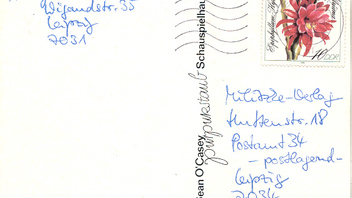 Wigandstr. 35
Leipzig
7031
Sean O'Casey
Purpurstaub
Schauspielhaus
10 DDR
Militzke-Verlag
Huttenstr. 18
Postamt 34
– postlagernd –
Leipzig
7034